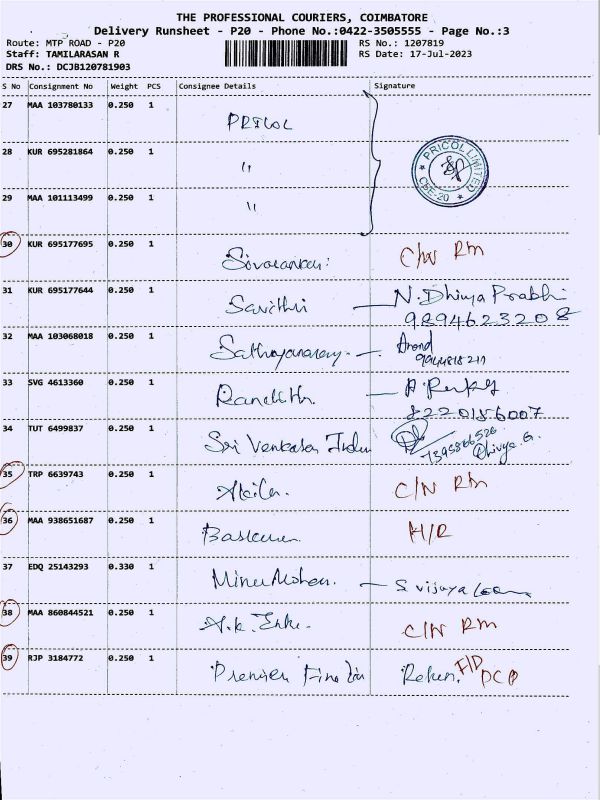 THE PROFESSIONAL COURIERS, COIMBATORE
Delivery Runsheet - P20 - Phone No.:0422-3505555 - Page No.:3
Route: MTP ROAD - P20 RS No.: 1207819
Staff: TAMILARASAN R RS Date: 17-Jul-2023
DRS No.: DCJB120781903
S No Consignment No Weight PCS Consignee Details Signature
27 MAA 103780133 0.250 1 PRICOL
28 KUR 695281864 0.250 1 "
PRICOL LIMITED CBE-20
29 MAA 101113499 0.250 1 "
30 KUR 695177695 0.250 1 C/N RM
31 KUR 695177644 0.250 1 Savithri N. Dhivya Prabhi
9894623208
32 MAA 103068018 0.250 1 Anand
33 SVG 4613360 0.250 1
8220156007
34 TUT 6499837 0.250 1 Sri Venkatesa Dhivya. G.
35 TRP 6639743 0.250 1 Akila. C/N RM
36 MAA 938651687 0.250 1 H/R
37 EDQ 25143293 0.330 1 Minu Mohan. S. vijaya
38 MAA 860844521 0.250 1 C/N RM
39 RJP 3184772 0.250 1 Premier